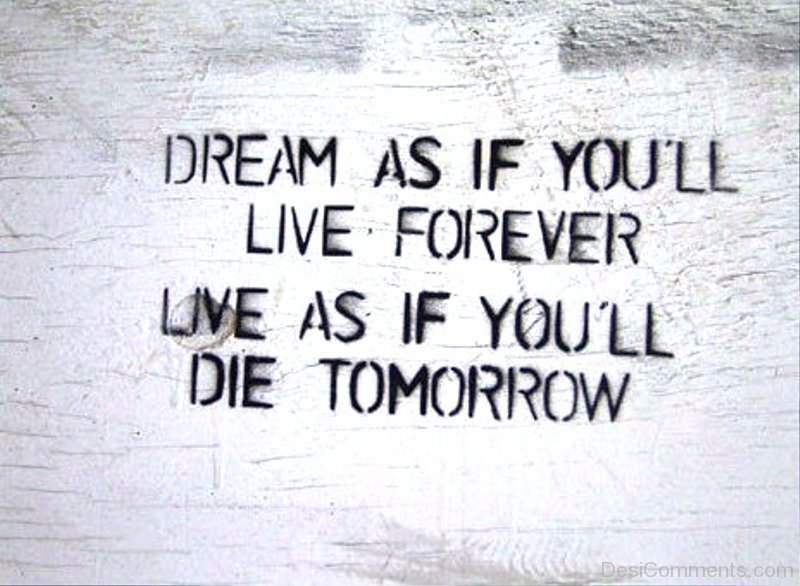 DREAM AS IF YOU'LL
LIVE FOREVER
LIVE AS IF YOU'LL
DIE TOMORROW
DesiComments.com